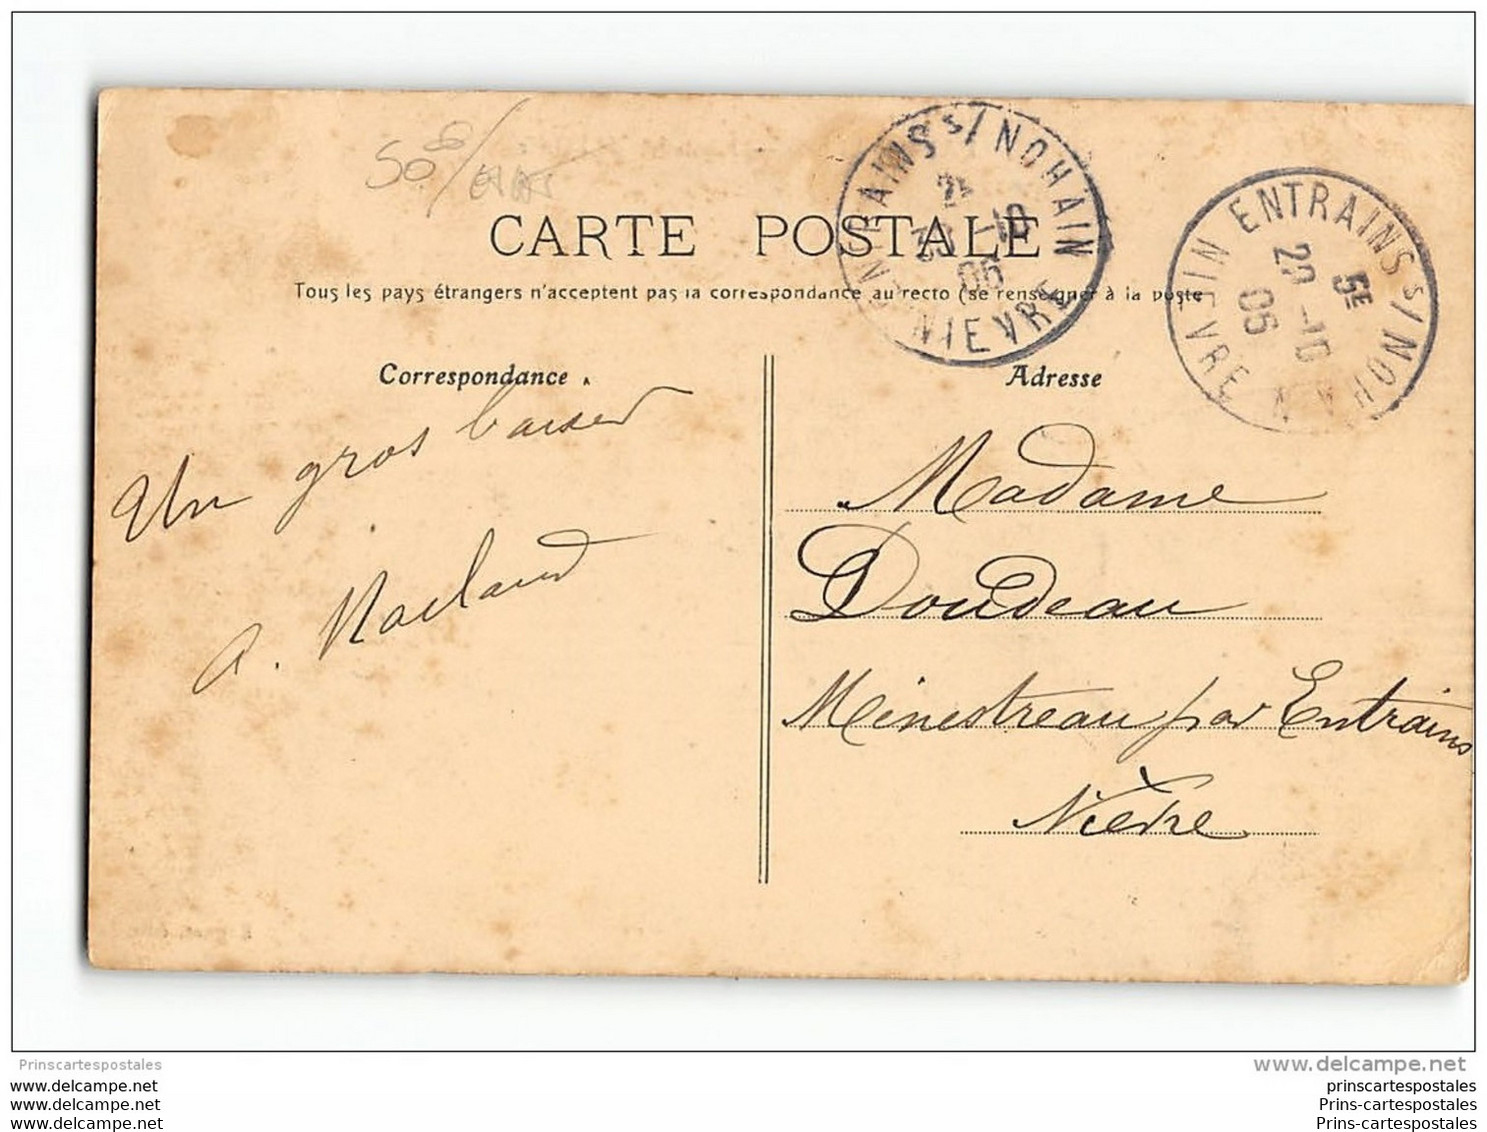 50
CARTE POSTALE
Tous les pays étrangers n'acceptent pas la correspondance au recto (se renseigner à la poste
ENTRAINS S/ NOHAIN
2E
30 -10
06
NIEVRE
ENTRAINS S/ NOHAIN
5E
29 -10
06
NIEVRE
Correspondance
Adresse
Un gros baiser
Madame
Doudeau
Minestreau par Entrains
Nièvre
Prinscartespostales
www.delcampe.net
www.delcampe.net
www.delcampe.net
www.delcampe.net
prinscartespostales
Prins-cartespostales
Prins-cartespostales